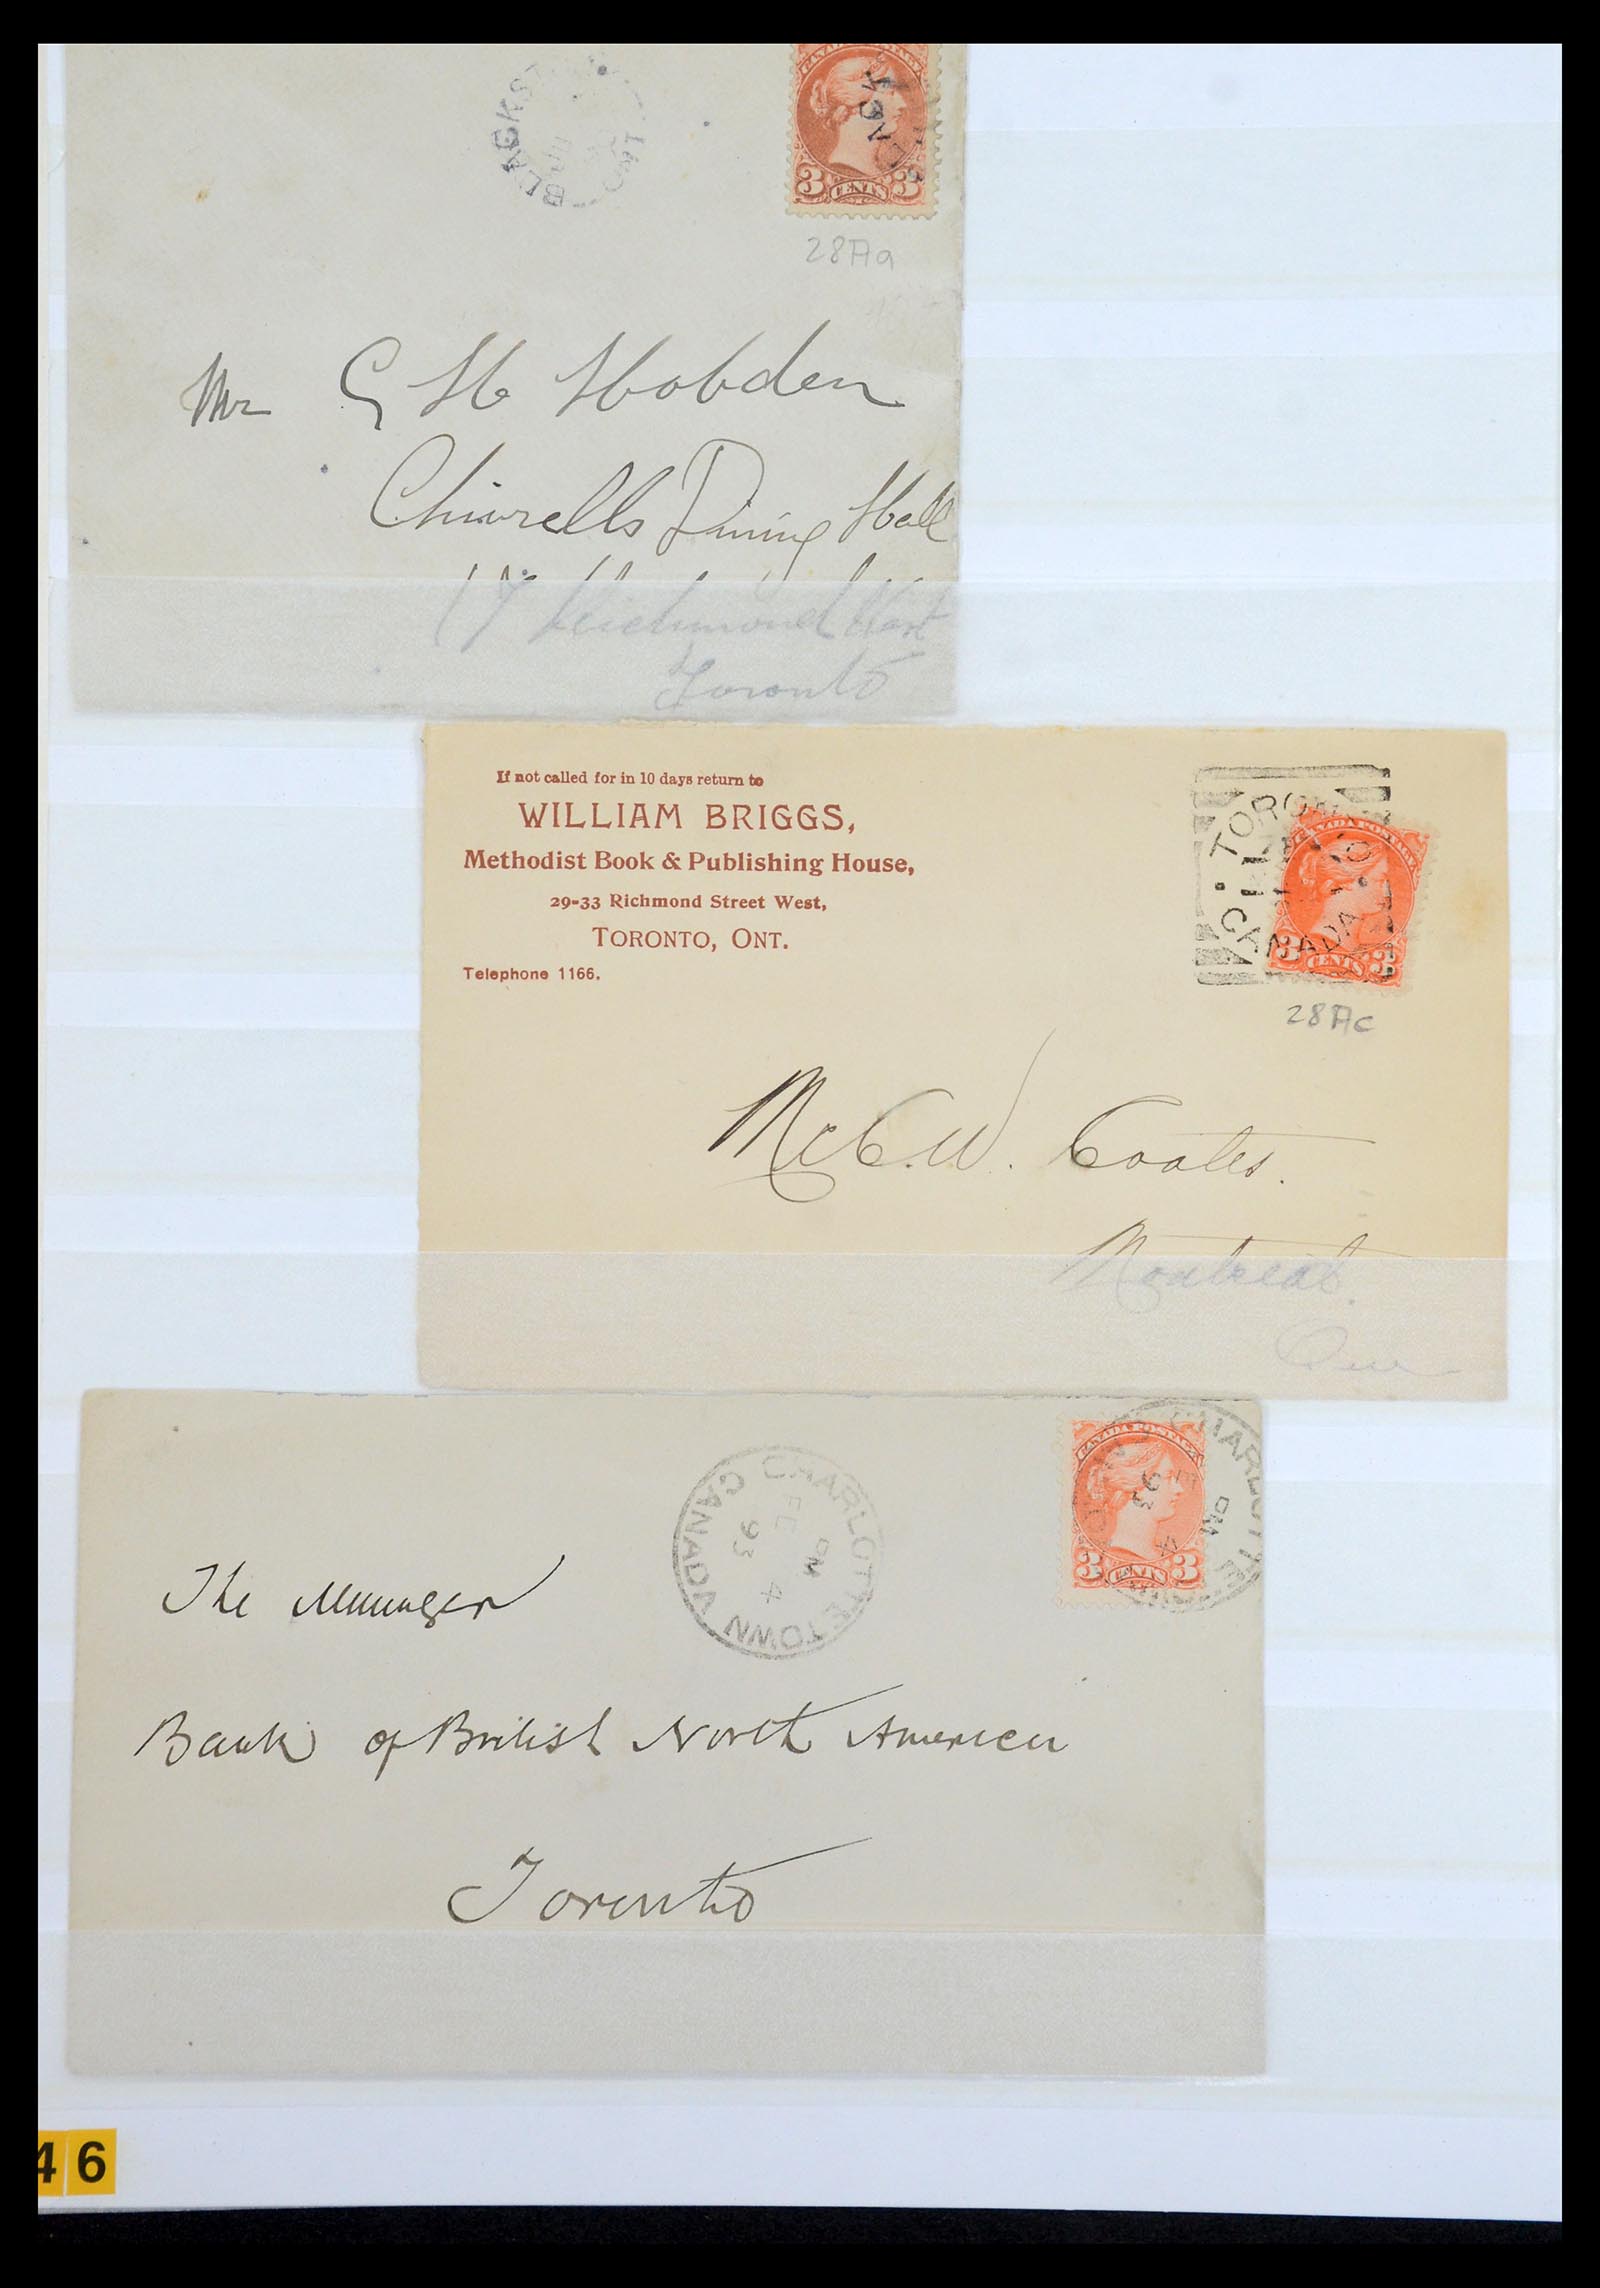 BLACKS
ONT
CANADA POSTAGE
3 CENTS 3
28Aa
Mr G H Hobden
Chiarells Dining Hall
17 Richmond West
Toronto
If not called for in 10 days return to
WILLIAM BRIGGS,
Methodist Book & Publishing House,
29-33 Richmond Street West,
TORONTO, ONT.
Telephone 1166.
TORON
CANADA
CANADA POSTAGE
3 CENTS 3
28Ac
Mr C. W. Coates.
Montreal.
Que
CHARLOTTETOWN CANADA
PM
4
DE
93
CANADA POSTAGE
3 CENTS 3
CHARLOTTE
PM
4
93
The Manager
Bank of British North America
Toronto
46